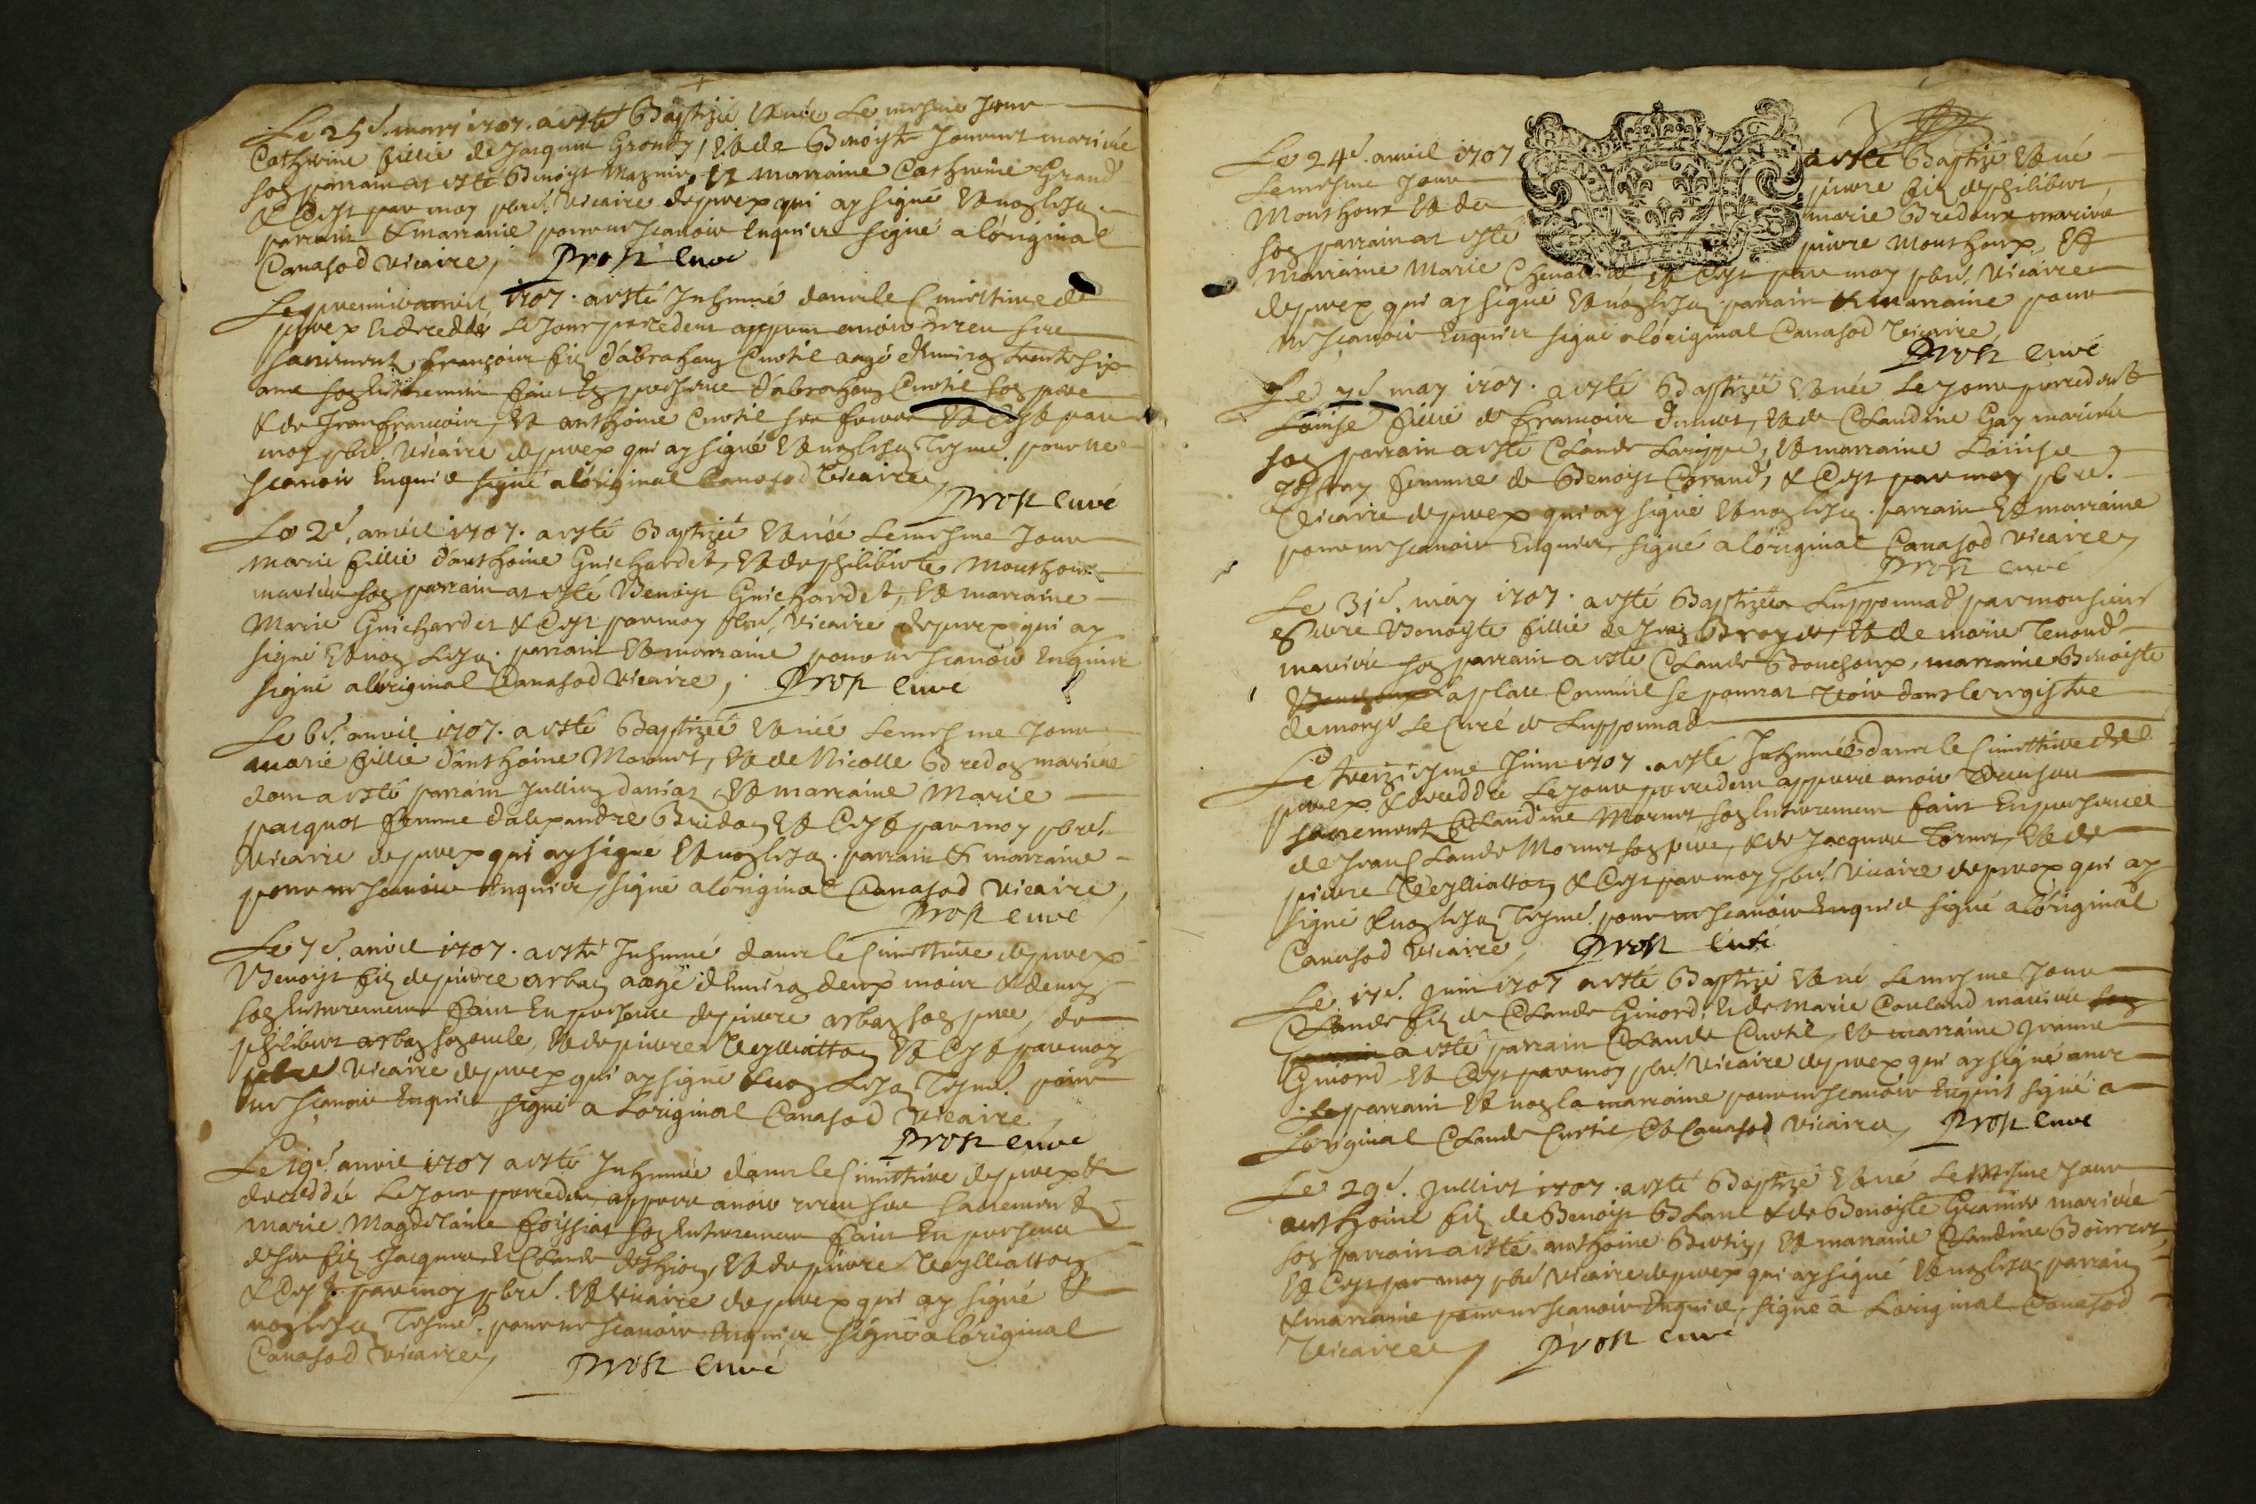 Le 25e. mars 1707. a esté Baptizée & née Le mesme Jour
Catherine fillie de Jacques Grondy, & de Benoiste Jannet mariés
son parrain at esté Benoist & marraine Catherine Grand
& C'est par moy pbre. Vicaire depirex qui ay signé & non Lesd.
parrain & marraine pour ne scavoir Enquis signé a l'original
Canasod Vicaire, Prost Curé
Le premier avril 1707. a esté Inhumé dans le Cimittiere de
pirex & decedde Le Jour precedent appres avoir receu ses
sacrements françois filz d'abraham Curtil aagé d'environ trente six
ans son Enterrement faict En presence d'abraham Curtil son pere
& de Jean françois, & anthoine Curtil ses freres & C'est par
moy pbre. Vicaire depirex qui ay signé & non Lesd. Tesms. pour ne
scavoir Enquis signé a l'original Canasod Vicaire,
Prost Curé
Le 2e. avril 1707. a esté Baptizée & née Le mesme Jour
Marie fillie d'anthoine Guichardet, & de philiberte Monthoux
mariés son parrain at esté Benoist Guichardet, & marraine
Marie Guichardet & C'est par moy pbre. Vicaire depirex qui ay
signé & non Lesd. parrain & marraine pour ne scavoir Enquis
signé a l'original Canasod Vicaire, Prost Curé
Le 6e. avril 1707. a esté Baptizée & née Le mesme Jour
Marie fillie d'anthoine Mornet, & de Nicolle Bredon mariés
dont a esté parrain Jullin & marraine Marie
pacquot femme d'alexandre Bridon & C'est par moy pbre.
Vicaire depirex qui ay signé & non Lesd. parrain & marraine
pour ne scavoir Enquis, signé a l'original Canasod Vicaire,
Prost Curé
Le 7e. avril 1707. a esté Inhumé dans le Cimittiere depirex
Benoist filz de pierre arban aagé d'environ deux mois & demy
son Enterrement faict En presence de pierre arban son pere, de
philibert arban son oncle, & de pierre Veylliatton & C'est par moy
pbre Vicaire depirex qui ay signé & non Lesd. Tesms. pour
ne scavoir Enquis signé a L'original Canasod Vicaire
Prost Curé
Le 19e. avril 1707 a esté Inhumée dans le Cimittiere depirex &
deceddée Le Jour precedent appres avoir receu ses sacremens
Marie Magdelaine foissiat son Enterrement faict En presence
de ses filz Jacques & Claude & de pierre Veylliatton
& C'est par moy pbre. & Vicaire de pirex qui ay signé &
non Lesd. Tesms. pour ne scavoir Enquis signé a l'original
Canasod Vicaire, Prost Curé
Le 24e. avril 1707 a esté Baptizé & né
Le mesme Jour pierre filz de philibert
Monthoux & de marie Bredoux mariés
son parrain at esté pierre Monthoux, &
Marraine Marie & C'est par moy pbre. Vicaire
depirex qui ay signé & non Lesd. parrain & marraine pour
ne scavoir Enquis signé a l'original Canasod Vicaire
Prost Curé
Le 7e. may 1707. a esté Baptizée & née Le Jour precedent
Loüise fillie de francois & de Claudine Gay mariés
son parrain a esté Claude & marraine Loüise
femme de Benoist Grand, & C'est par moy pbre.
Vicaire depirex qui ay signé & non Lesd. parrain & marraine
pour ne scavoir Enquis, signé a l'original Canasod Vicaire,
Prost Curé
Le 31e. may 1707. a esté Baptizée a Lupponnad par monsieur
Benoiste fillie de Jean & de marie Tenond
mariés son parrain a esté Claude Bouchoux, marraine Benoiste
La place Comme il se pourrat Voir dans le registre
de monsr Le Curé de Lupponnad
Le treiziesme Juin 1707. a esté Inhumée dans le Cimittiere de
pirex & deceddée Le Jour precedent appres avoir Receu ses
sacrements Claudine Mornet son Enterrement faict En presence
de Jean Claude Mornet son pere, & de Jacques & de
pierre Veylliatton & C'est par moy pbre. Vicaire depirex qui ay
signé & non Lesd. Tesms. pour ne scavoir Enquis signé a l'original
Canasod Vicaire, Prost Curé
Le 17e. Juin 1707 a esté Baptizé & né Le mesme Jour
Claude filz de Claude Guiord, & de Marie mariés
a esté parrain Claude Curtil, & marraine Jeanne
Guiord & C'est par moy pbre. Vicaire depirex qui ay signé avec
Le parrain & non la marraine pour ne scavoir Enquis signé a
L'original Claude Curtil, & Canasod Vicaire, Prost Curé
Le 29e. Julliet 1707. a esté Baptizé & né Le Mesme Jour
anthoine filz de Benoist Blanc & de Benoiste mariés
son parrain a esté anthoine & marraine Claudine
& C'est par moy pbre Vicaire depirex qui ay signé & non Lesd. parrain
& marraine pour ne scavoir Enquis, signé a L'original Canasod
Vicaire, Prost Curé